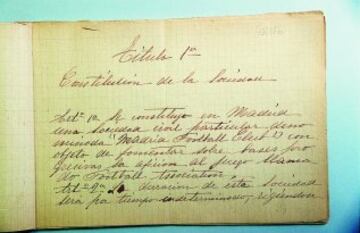 Título 1º
Constitución de la Sociedad
Art.º 1º Se constituye en Madrid
una sociedad civil particular deno
minada "Madrid Football Club" con
objeto de fomentar sobre bases
la aficion al juego llama
do Football Association.
Art.º 2º La duración de esta Sociedad
será por tiempo indeterminado,